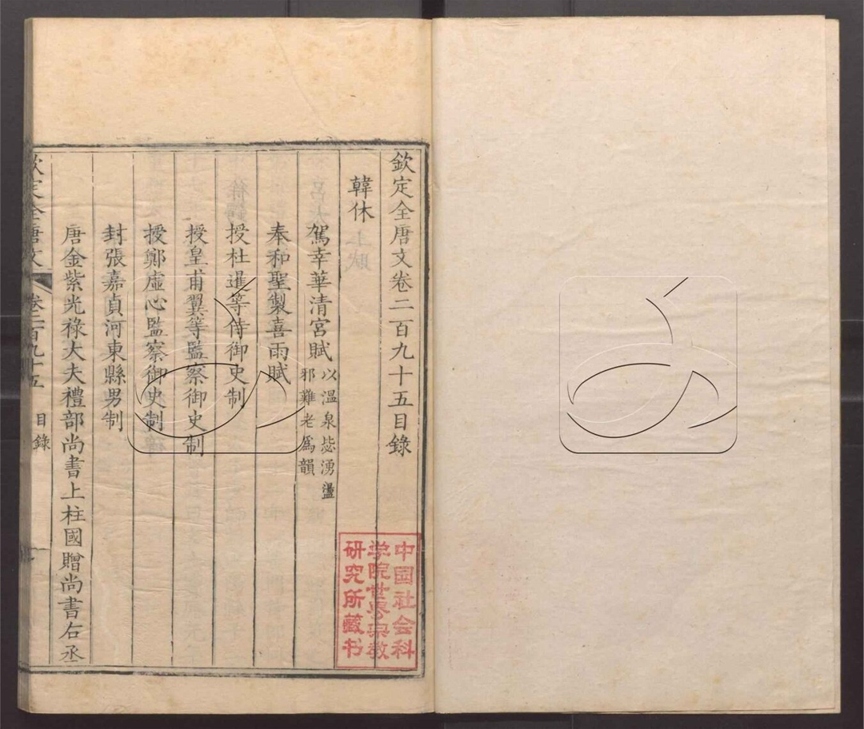 欽定全唐文卷二百九十五目錄
韓休
駕幸華清宮賦 以温泉毖湧盪
邪難老爲韻
奉和聖製喜雨賦
授杜暹等侍御史制
授皇甫翼等監察御史制
授鄭虛心監察御史制
封張嘉貞河東縣男制
唐金紫光祿大夫禮部尚書上柱國贈尚書右丞
欽定全唐文 卷二百九十五 目錄 一
中国社会科
学院世界宗教
研究所藏书